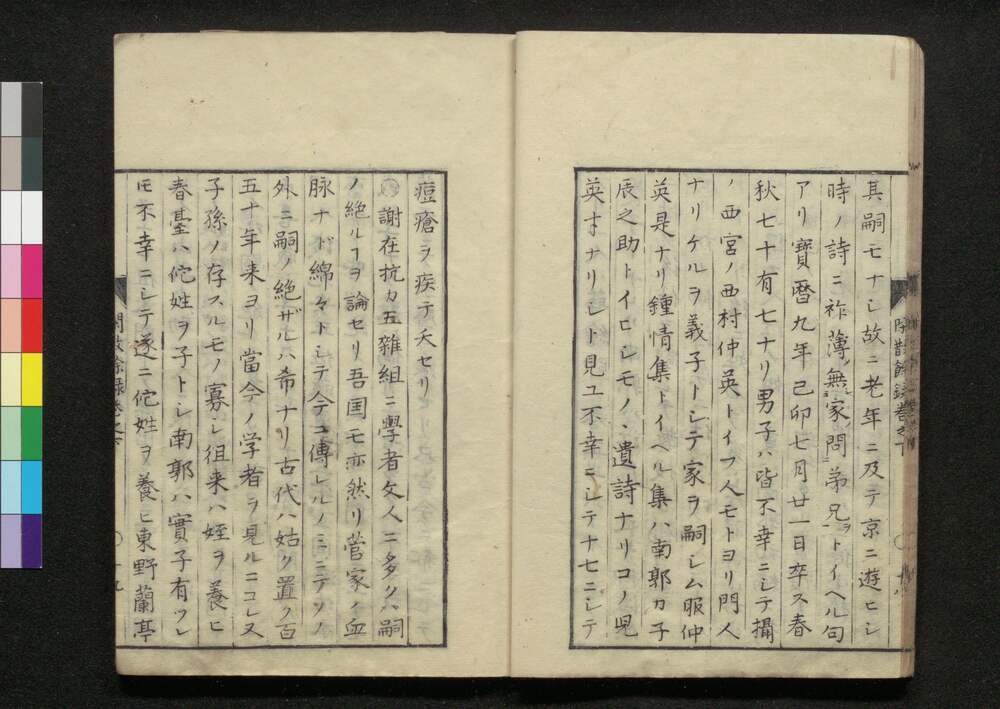 其嗣モナシ故ニ老年ニ及テ京ニ遊ヒシ
時ノ詩ニ祚薄無家問弟兄ヲトイヘル句
アリ寶暦九年己卯七月廿一日卒ス春
秋七十有七ナリ男子ハ皆不幸ニシテ攝
ノ西宮ノ西村仲英トイフ人モトヨリ門人
ナリケルヲ義子トシテ家ヲ嗣シム服仲
英是ナリ鍾情集トイヘル集ハ南郭カ子
辰之助トイヒシモノヽ遺詩ナリコノ児
英才ナリシト見ユ不幸ニシテ十七ニシテ
痘瘡ヲ疾テ夭セリ
謝在抗カ五雜組ニ學者文人ニ多クハ嗣
ノ絶ルヿヲ論セリ吾国モ亦然リ菅家ノ血
脉ナド綿々トシテ今ニ傳レルノミニテソノ
外ニ嗣ノ絶ザルハ希ナリ古代ハ姑ク置ク百
五十年来ヨリ當今ノ学者ヲ見ルニコレ又
子孫ノ存スルモノ寡シ徂来ハ姪ヲ養ヒ
春臺ハ佗姓ヲ子トシ南郭ハ實子有ツレ
モ不幸ニシテ遂ニ佗姓ヲ養ヒ東野蘭亭
閑散餘録巻之下